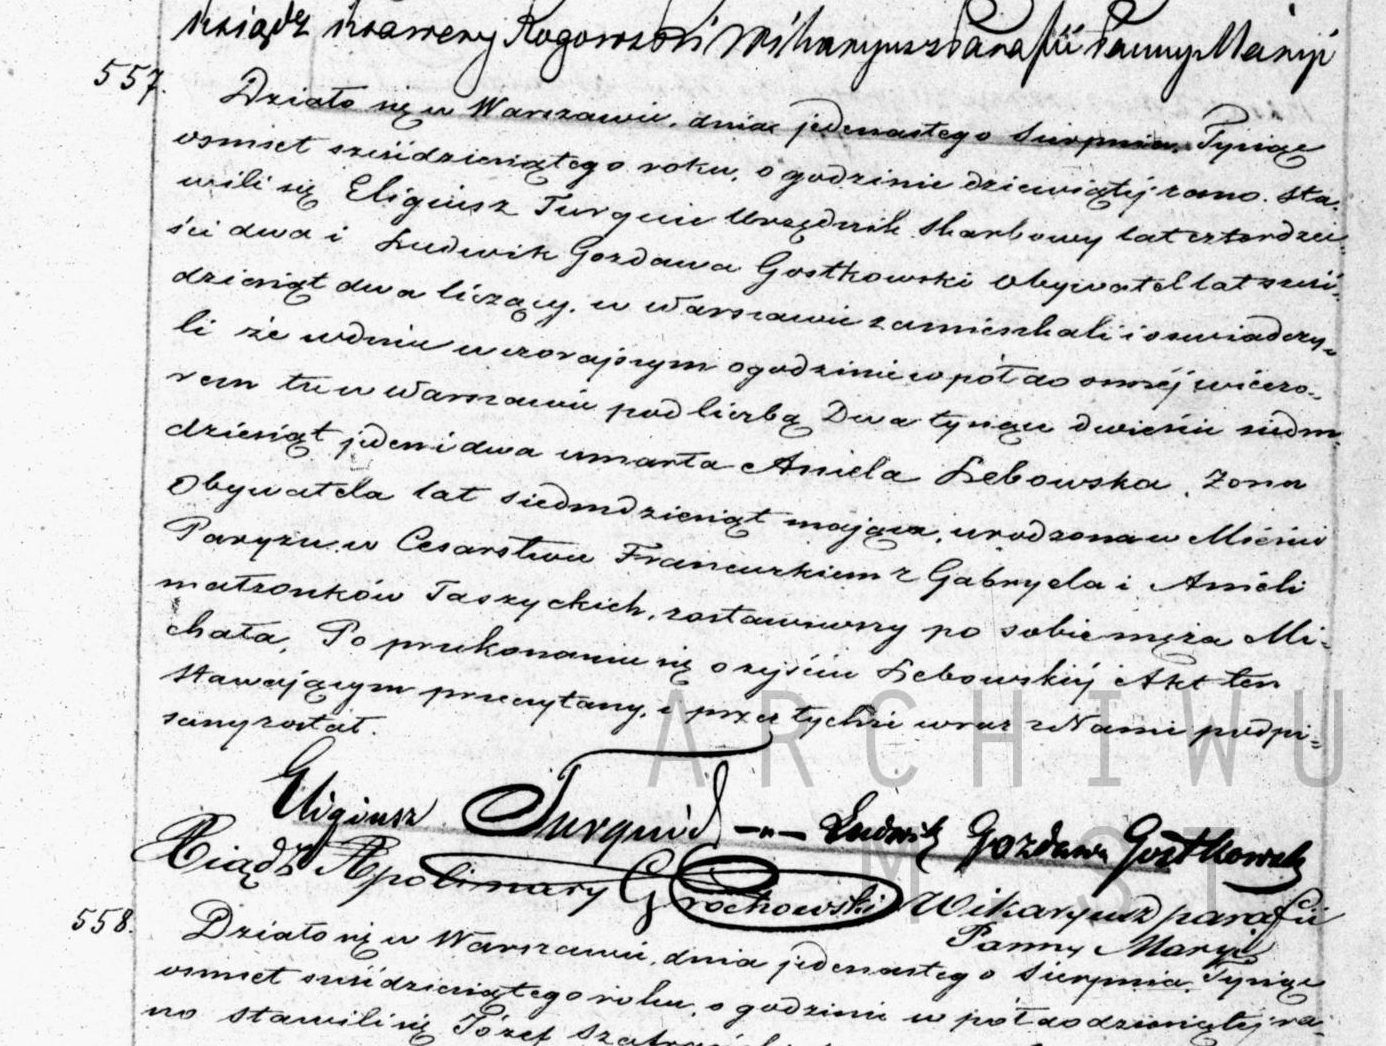 Ksiądz Ksawery Rogowski Wikaryusz Parafii Panny Maryi
557.
Działo się w Warszawie, dnia jedenastego Sierpnia, Tysiąc
osmset sześćdziesiątego roku, o godzinie dziewiątéj rano. Sta-
wili się Eligiusz Turquie Urzędnik Skarbowy lat czterdzie-
ści dwa i Ludwik Gozdawa Gostkowski Obywatel lat sześć-
dziesiąt dwa liczący, w Warszawie zamieszkali i oswiadczy-
li że w dniu wczorajszym o godzinie w pół do osméj wieczo-
rem tu w Warszawie pod liczbą Dwa tysiące dwieście siedm
dziesiąt jeden i dwa umarła Aniela Lebowska, Żona
Obywatela lat siedmdziesiąt mająca, urodzona w Mieście
Paryżu w Cesarstwie Francuzkiem z Gabryela i Anieli
małżonków Taszyckich, zostawiwszy po sobie męża Mi-
chała, Po przekonaniu się o zejściu Lebowskiéj Akt ten
stawającym przeczytany, i przez tychże wraz z Nami podpi-
sany został.
Eligiusz Turquie -"- Ludwik Gozdawa Gostkowski
Xiądz Apolinary Grochowski Wikaryusz parafii
Panny Maryi
558.
Działo się w Warszawie, dnia jedenastego Sierpnia, Tysiąc
osmset sześćdziesiątego roku, o godzinie w pół do dziesiątéj ra-
no stawili się Józef
ARCHIWU
M ST